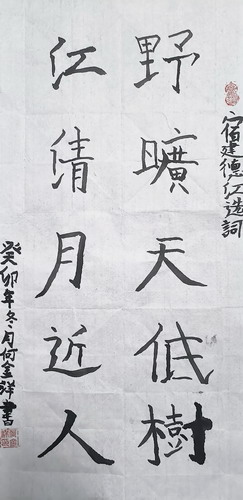 宿建德江造詞
野曠天低樹
江清月近人
癸卯年冬月何金祥書